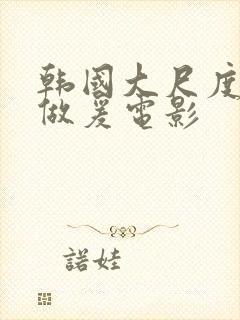 韩國大尺度
做爰電影
諾娃